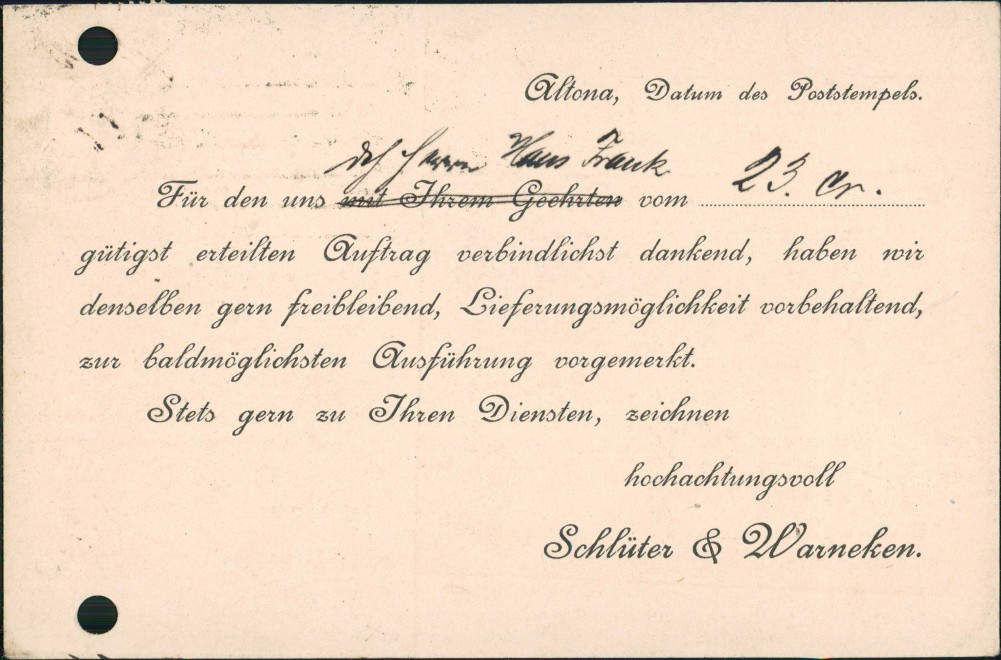 Altona, Datum des Poststempels.
Herrn Hans Frank
Für den uns mit Ihrem Geehrten vom 23. cr.
gütigst erteilten Auftrag verbindlichst dankend, haben wir
denselben gern freibleibend, Lieferungsmöglichkeit vorbehaltend,
zur baldmöglichsten Ausführung vorgemerkt.
Stets gern zu Ihren Diensten, zeichnen
hochachtungsvoll
Schlüter & Warneken.